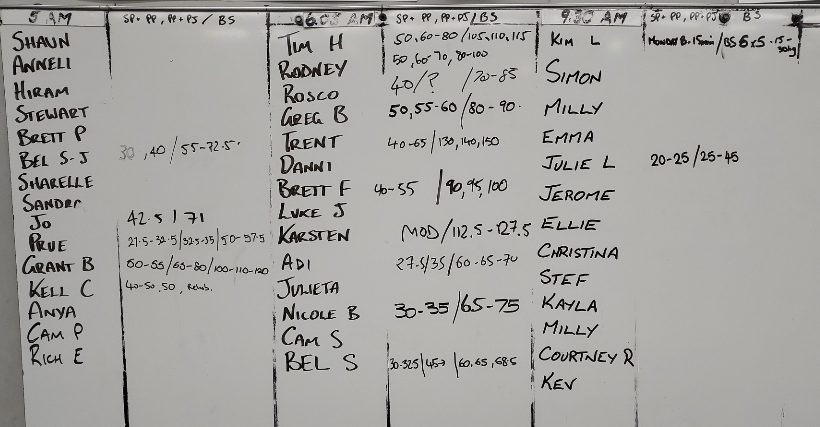 5 AM SP+ PP, PP+PJ / BS
SHAUN
ANNELI
HIRAM
STEWART
BRETT P
BEL S-J 30, 40 / 55-72.5
SHARELLE
SANDRA
JO 42.5 / 71
PRUE 27.5-32.5/32.5-35/50-57.5
GRANT B 50-55/65-80/100-110-120
KELL C 40-50, 50, Rehab.
ANYA
CAM P
RICH E
AM SP+ PP, PP+PJ / BS
TIM H 50,60-80 /105,110,115
RODNEY 50, 60-70, 80-100
ROSCO 40/? /70-85
GREG B 50,55-60 /80-90.
TRENT 40-65/130,140,150
DANNI
BRETT F 40-55 /90,95,100
LUKE J
KARSTEN MOD/112.5-127.5
ADI 27.5/35/60-65-70
JULIETA
NICOLE B 30-35/65-75
CAM S
BEL S 30-32.5/45→/60,65,68.5
9:30 AM SP+ PP, PP-PJ BS
KIM L MONDAY B-15min /BS 6x5
SIMON
MILLY
EMMA
JULIE L 20-25/25-45
JEROME
ELLIE
CHRISTINA
STEF
KAYLA
MILLY
COURTNEY R
KEV